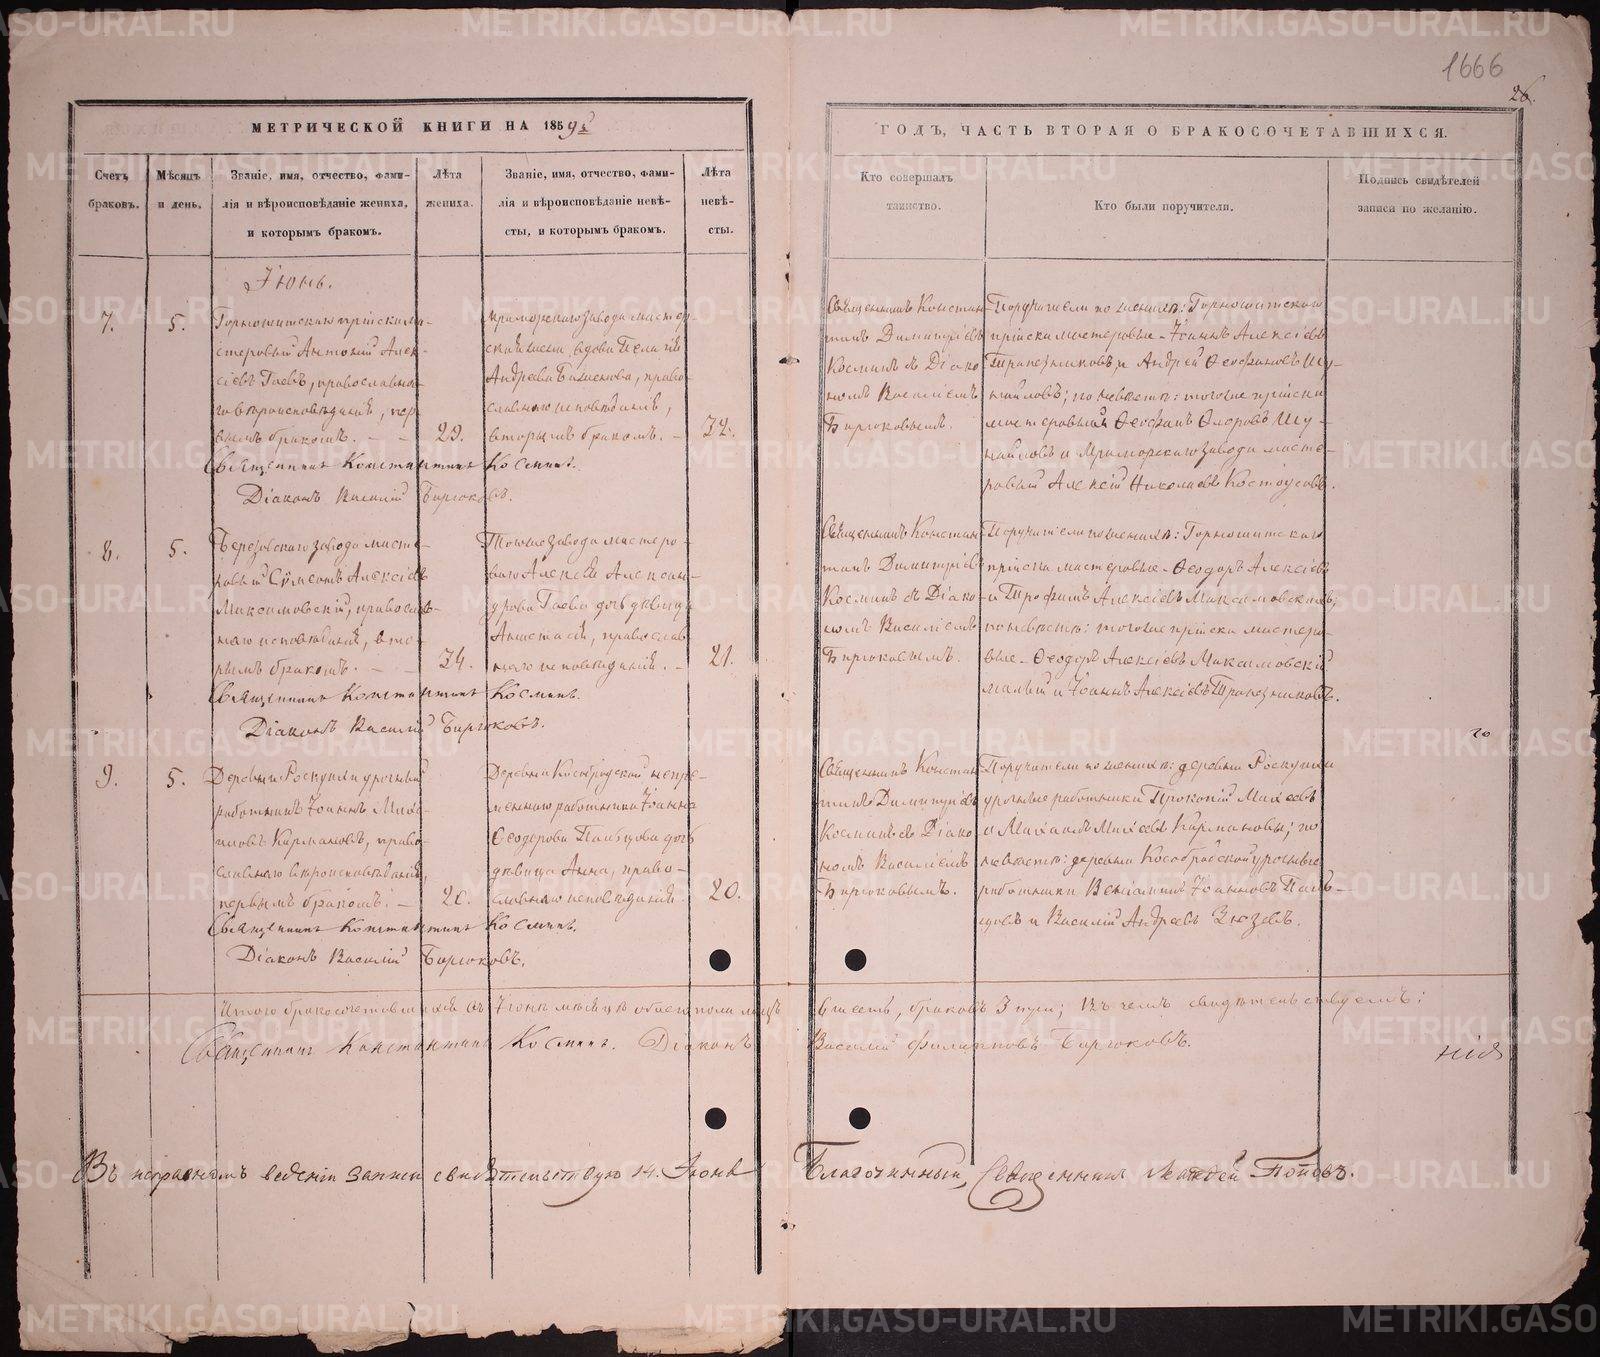 1666
26.
МЕТРИЧЕСКОЙ КНИГИ НА 1859й
ГОДЪ, ЧАСТЬ ВТОРАЯ О БРАКОСОЧЕТАВШИХСЯ.
Счетъ браковъ.
Мѣсяцъ и день.
Званіе, имя, отчество, фами-
лія и вѣроисповѣданіе жениха,
и которымъ бракомъ.
Лѣта
жениха.
Званіе, имя, отчество, фами-
лія и вѣроисповѣданіе невѣ-
сты, и которымъ бракомъ.
Лѣта
невѣ-
сты.
Кто совершалъ
таинство.
Кто были поручители.
Подпись свидѣтелей
записи по желанію.
Іюнь.
7.
5.
Горнощитскаго пріиска ма-
стеровый Антоній Алек-
сіевъ Гаевъ, православна-
го вѣроисповѣданія, пер-
вымъ бракомъ.
29.
Мраморскаго завода мастер-
ская вдова Пелагія
Андреева, право-
славнаго исповѣданія,
вторымъ бракомъ.
32.
Священникъ Констан-
тинъ Димитріевъ
Косминъ съ Діако-
номъ Василіемъ
Бирюковымъ.
Поручители по женихѣ: Горнощитскаго
пріиска мастеровые Іоаннъ Алексіевъ
Трапезниковъ и Андрей Ѳеофановъ Шу-
найловъ; по невѣстѣ: тогоже пріиска
мастеровый Ѳеофанъ Шу-
найловъ и Мраморскаго завода масте-
ровый Алексій Николаевъ Костоусовъ.
Священникъ Константинъ Косминъ.
Діаконъ Василій Бирюковъ.
8.
5.
Березовскаго завода масте-
ровый Сѵмеонъ Алексіевъ
Максимовскій, православ-
наго исповѣданія, вто-
рымъ бракомъ.
34.
Тогоже завода мастеро-
ваго Алексія Алексан-
дрова Гаева дочь дѣвица
Анастасія, православ-
наго исповѣданія.
21.
Священникъ Констан-
тинъ Димитріевъ
Косминъ съ Діако-
номъ Василіемъ
Бирюковымъ.
Поручители по женихѣ: Горнощитскаго
пріиска мастеровые Ѳеодоръ Алексіевъ
и Трофимъ Алексіевъ Максимовскіе;
по невѣстѣ: тогоже пріиска мастеро-
вые Ѳеодоръ Алексіевъ Максимовскій
малый и Іоаннъ Алексіевъ Трапезниковъ.
Священникъ Константинъ Косминъ.
Діаконъ Василій Бирюковъ.
9.
5.
Деревни Роскуихи урочный
работникъ Іоаннъ Миха-
иловъ Кармановъ, право-
славнаго вѣроисповѣданія,
первымъ бракомъ.
20.
Деревни Кособродской непре-
меннаго работника Іоанна
Ѳеодорова Пальцова дочь
дѣвица Анна, право-
славнаго исповѣданія.
20.
Священникъ Констан-
тинъ Димитріевъ
Косминъ съ Діако-
номъ Василіемъ
Бирюковымъ.
Поручители по женихѣ: деревни Роскуихи
урочные работники Прокопій
и Михаилъ Кармановы; по
невѣстѣ: деревни Кособродской урочные
работники Веніаминъ Іоанновъ Паль-
цовъ и Василій Андреевъ Зюзевъ.
Священникъ Константинъ Косминъ.
Діаконъ Василій Бирюковъ.
Итого бракосочетавшихся въ Іюнѣ мѣсяцѣ обоего пола лицъ
шесть, браковъ 3 три; въ чемъ свидѣтельствуемъ:
Священникъ Константинъ Косминъ. Діаконъ
Василій Филипповъ Бирюковъ.
нія
Въ исправномъ веденіи записи свидѣтельствую 14. Іюня
Благочинный, Священникъ Попковъ.
METRIKI.GASO-URAL.RU